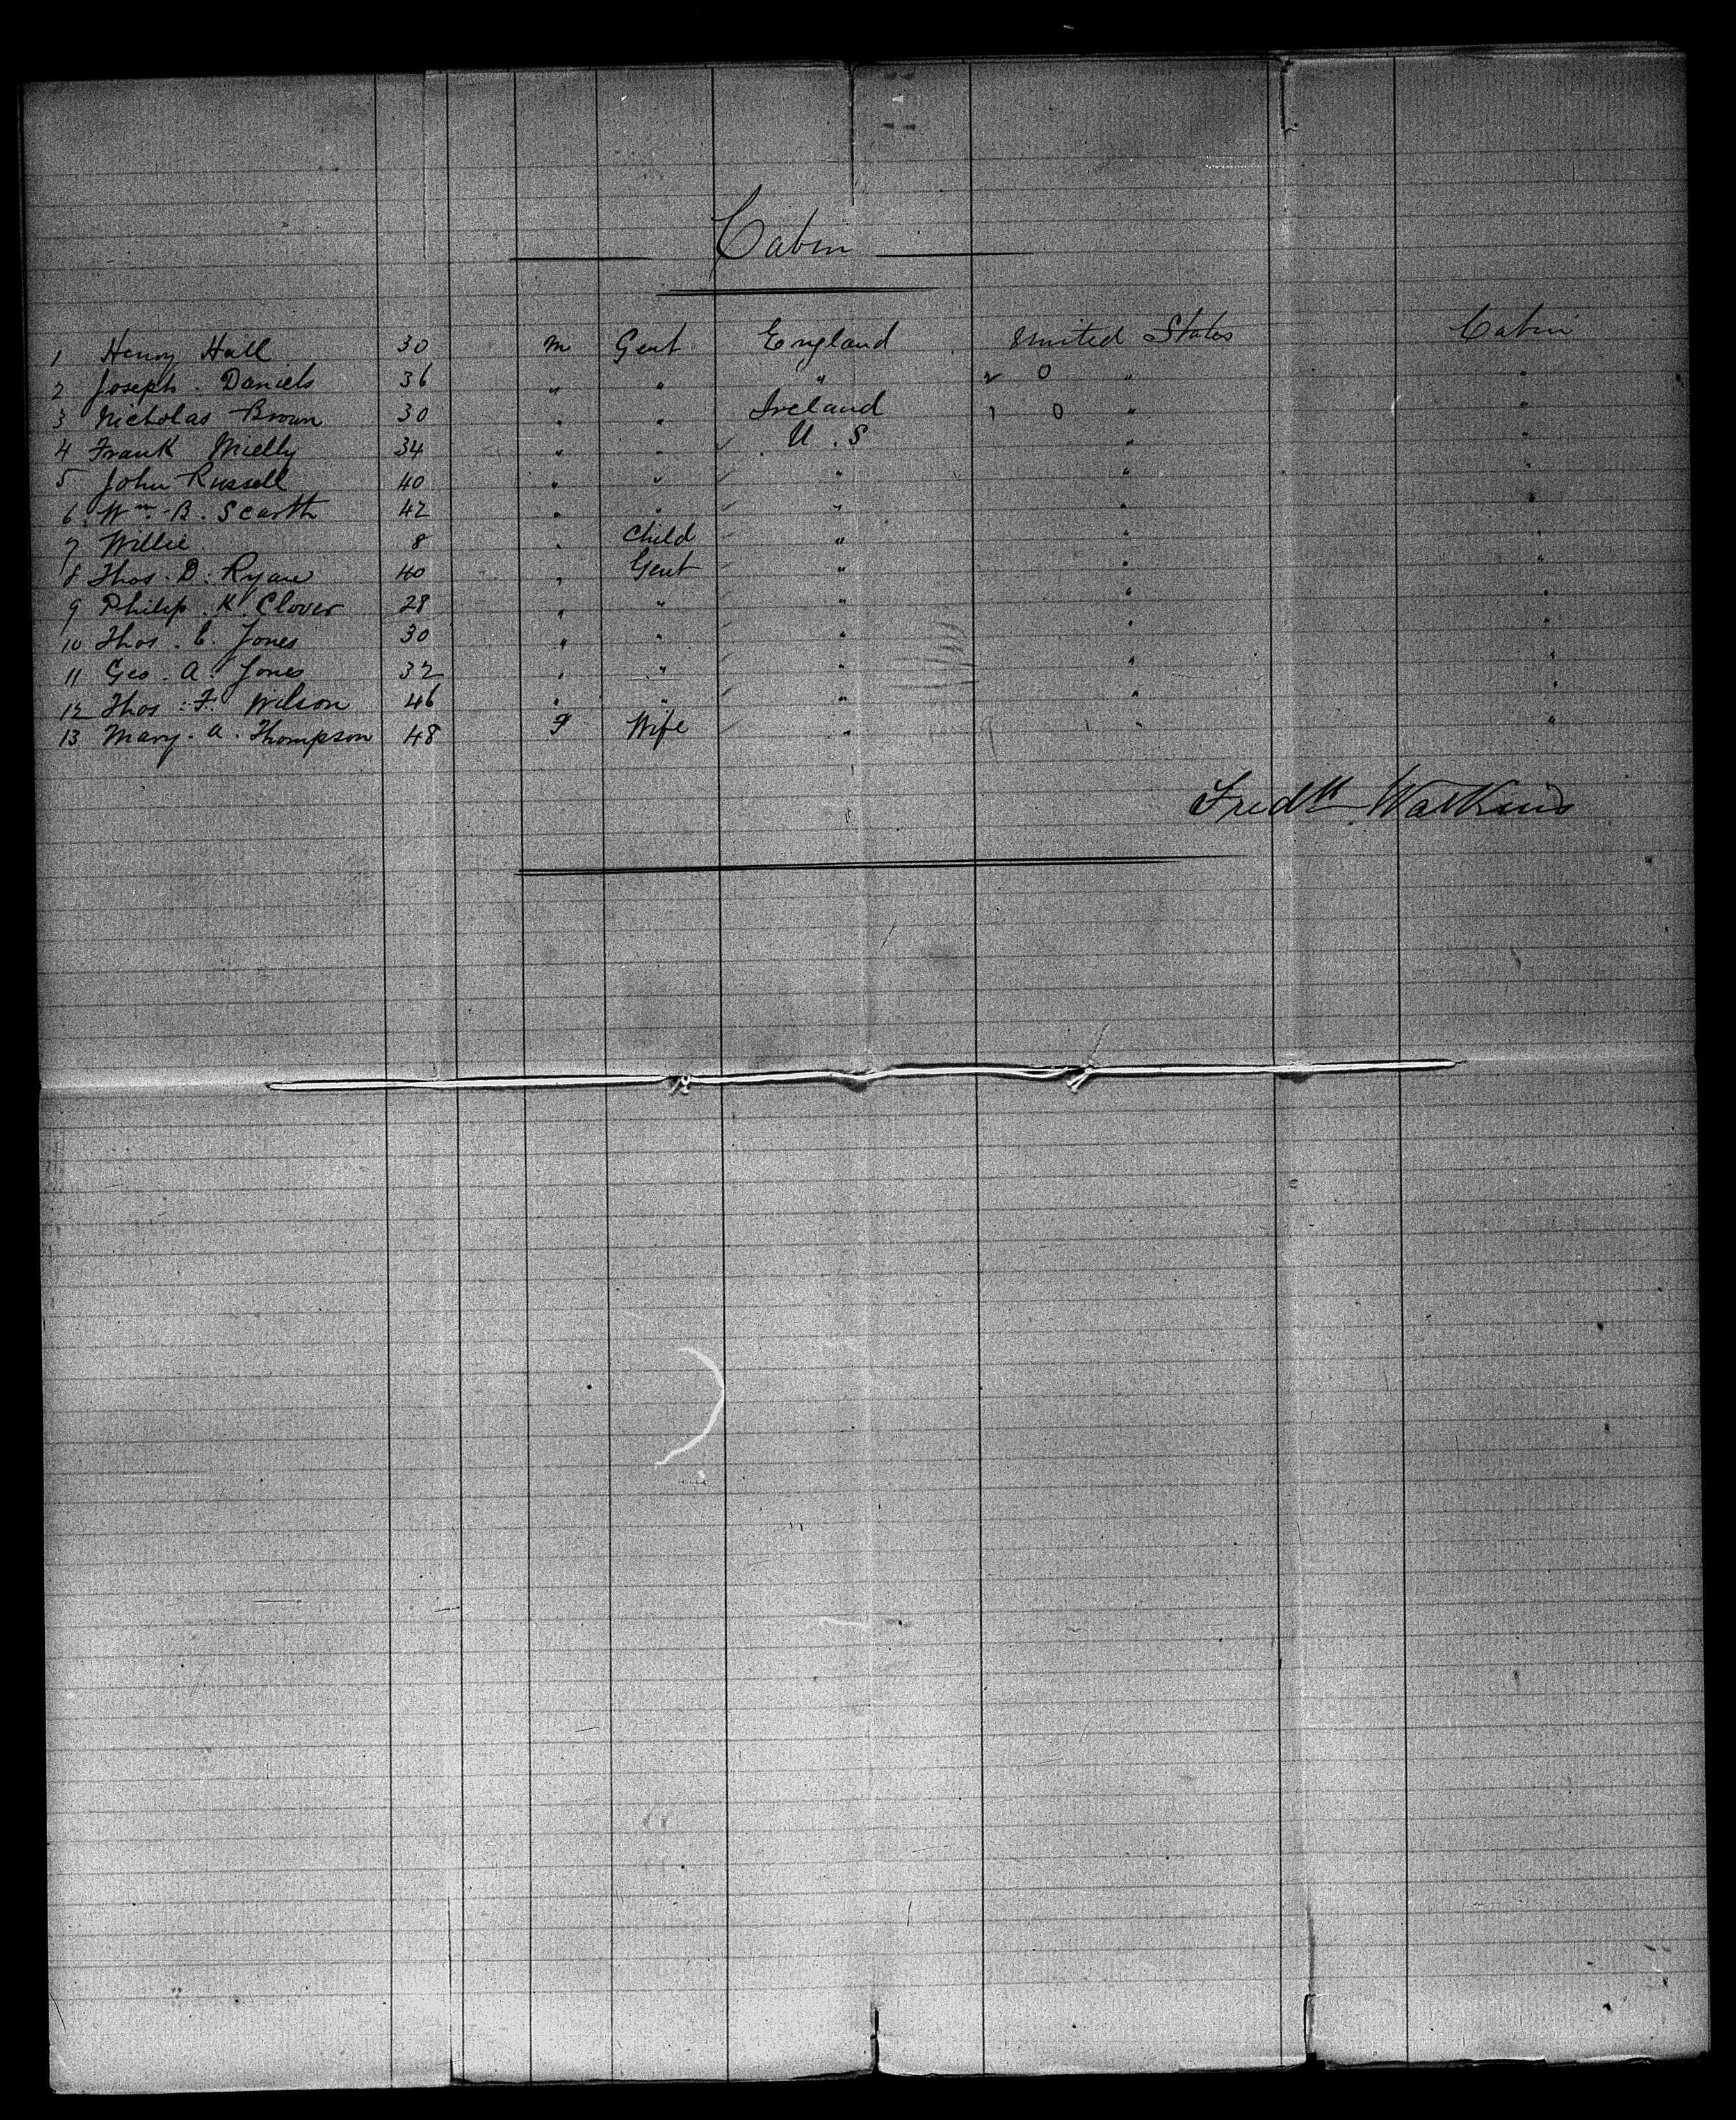 Cabin
1 Henry Hall 30 m Gent England United States Cabin
2 Joseph. Daniels 36 " " " 2 0 " "
3 Nicholas Brown 30 " " Ireland 1 0 " "
4 Frank Mielly 34 " " U.S " "
5 John Russell 40 " " " " "
6 Wm. B. Scarth 42 " " " " "
7 Willie 8 " Child " " "
8 Thos. D. Ryan 40 " Gent " " "
9 Philip. K. Clover 28 " " " " "
10 Thos. E. Jones 30 " " " " "
11 Geo. A. Jones 32 " " " " "
12 Thos. F. Wilson 46 " " " " "
13 Mary. A. Thompson 48 f Wife " " "
Fredk. Watkins